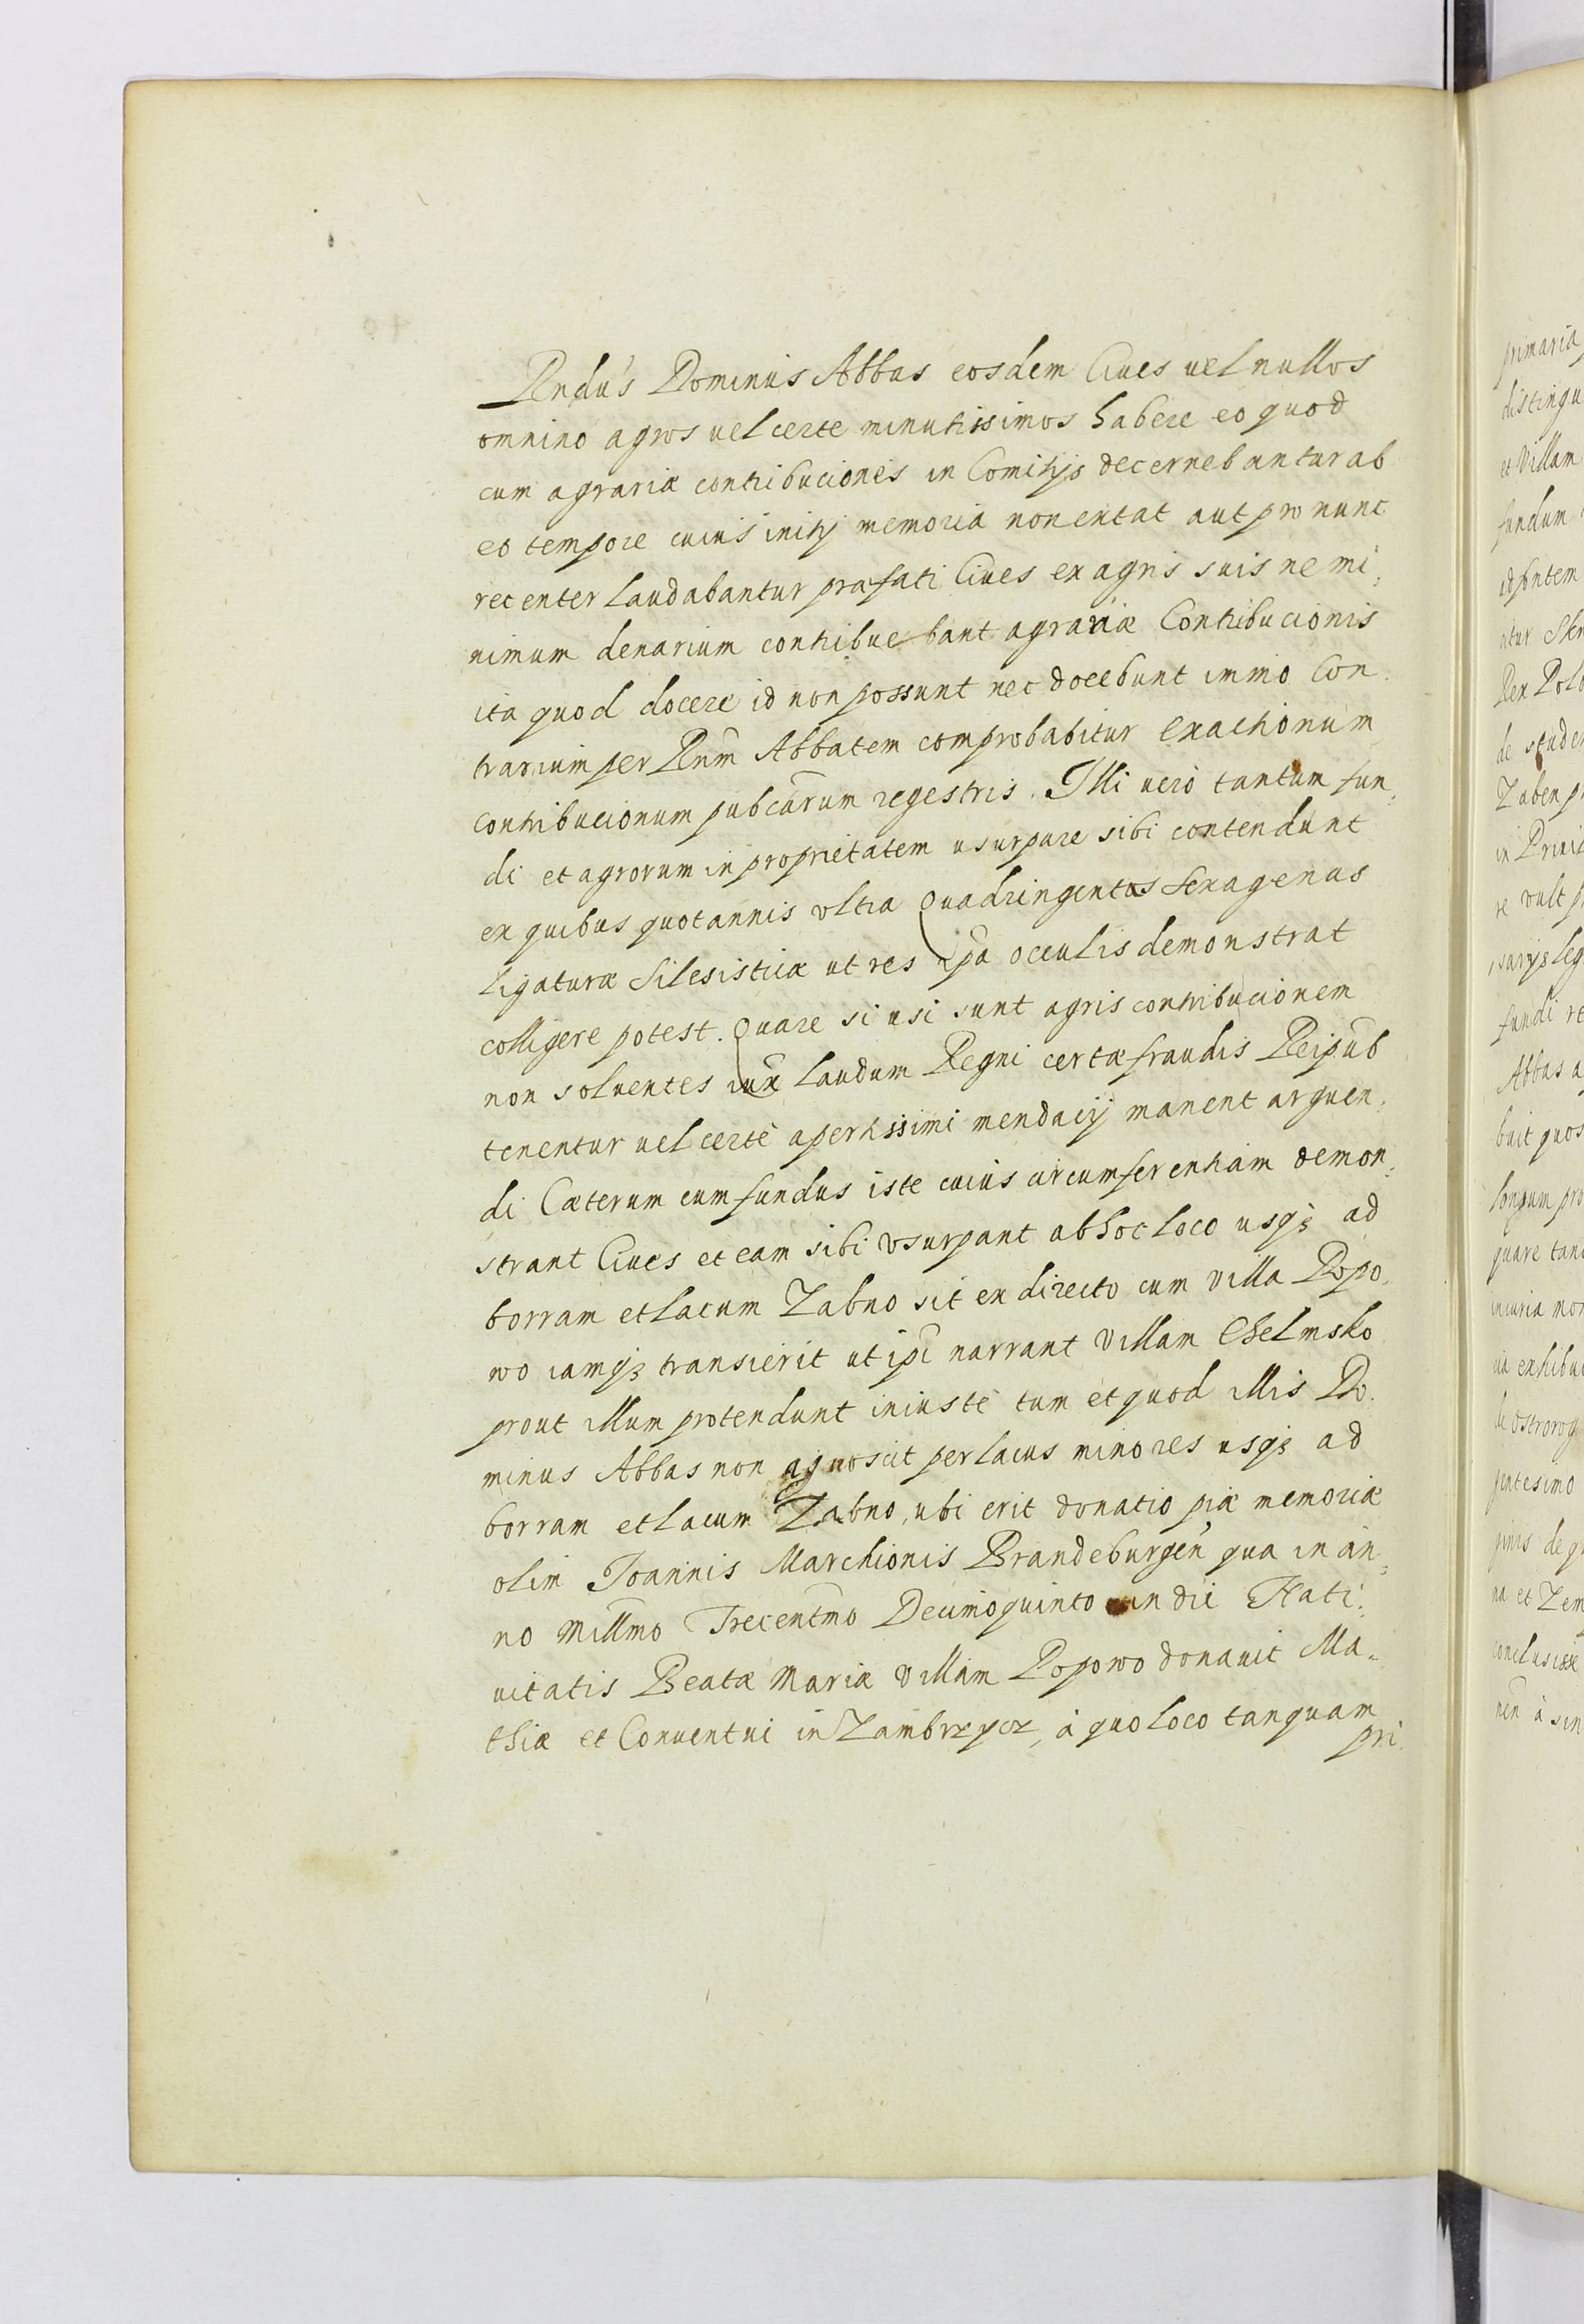 Rndus Dominus Abbas eosdem Ciues uel nullos
omnino agros uel certe minutissimos habere eo quod
cum agrariæ contribucionis in Comitijs decernebantur ab
eo tempore cuius initij memoria non extat aut pro nunc
recenter laudabantur præfati Ciues ex agris suis ne mi,
nimum denarium contribuebant agrariæ Contribucionis
ita quod docere id non possunt nec docebunt immo Con
trarium per Rnm Abbatem comprobabitur exactionum
contribucionum pubcarum regestris. Illi uero tantum fun,
di et agrorum in proprietatem usurpare sibi contendunt
ex quibus quotannis vltra Quadringentas sexagenas
ligaturæ Silesisticæ ut res ipa occulis demonstrat
colligere potest. Quare si usi sunt agris contribucionem
non soluentes iuxa laudum Regni certæ fraudis Reipub
tenentur uel certè apertissimi mendacij manent arguen,
di Cæterum cum fundus iste cuius circumferentiam demon,
strant Ciues et eam sibi vsurpant ab hoc loco usqz ad
borram et lacum Zabno sit ex directo cum villa Popo,
wo iamqz transierit ut ipi narrant villam Chelmsko
prout illum protendunt iniustè tum et quod illis Do,
minus Abbas non agnoscit per lacus minores usqz ad
borram et lacum Zabno, ubi erit donatio piæ memoriæ
olim Joannis Marchionis Brandeburgen qua in an,
no Millmo Trecentmo Decimoquinto in die Nati,
uitatis Beatæ Mariæ villam Popowo donauit Ma,
thiæ et Conuentui in Zambrzycz, à quo loco tanquam
pri
primaria
distingu
et Villam
fundum
ad fontem
Rex Polo
de studen
Zaben pr
in Priui
re vult p
sarijs leg
fundi re
Abbas a
buit quos
longum pro
quare tan
incuria mon
ia exhibui
de ostrorog
gentesimo
na et Zem
conclusisse
nen à sin